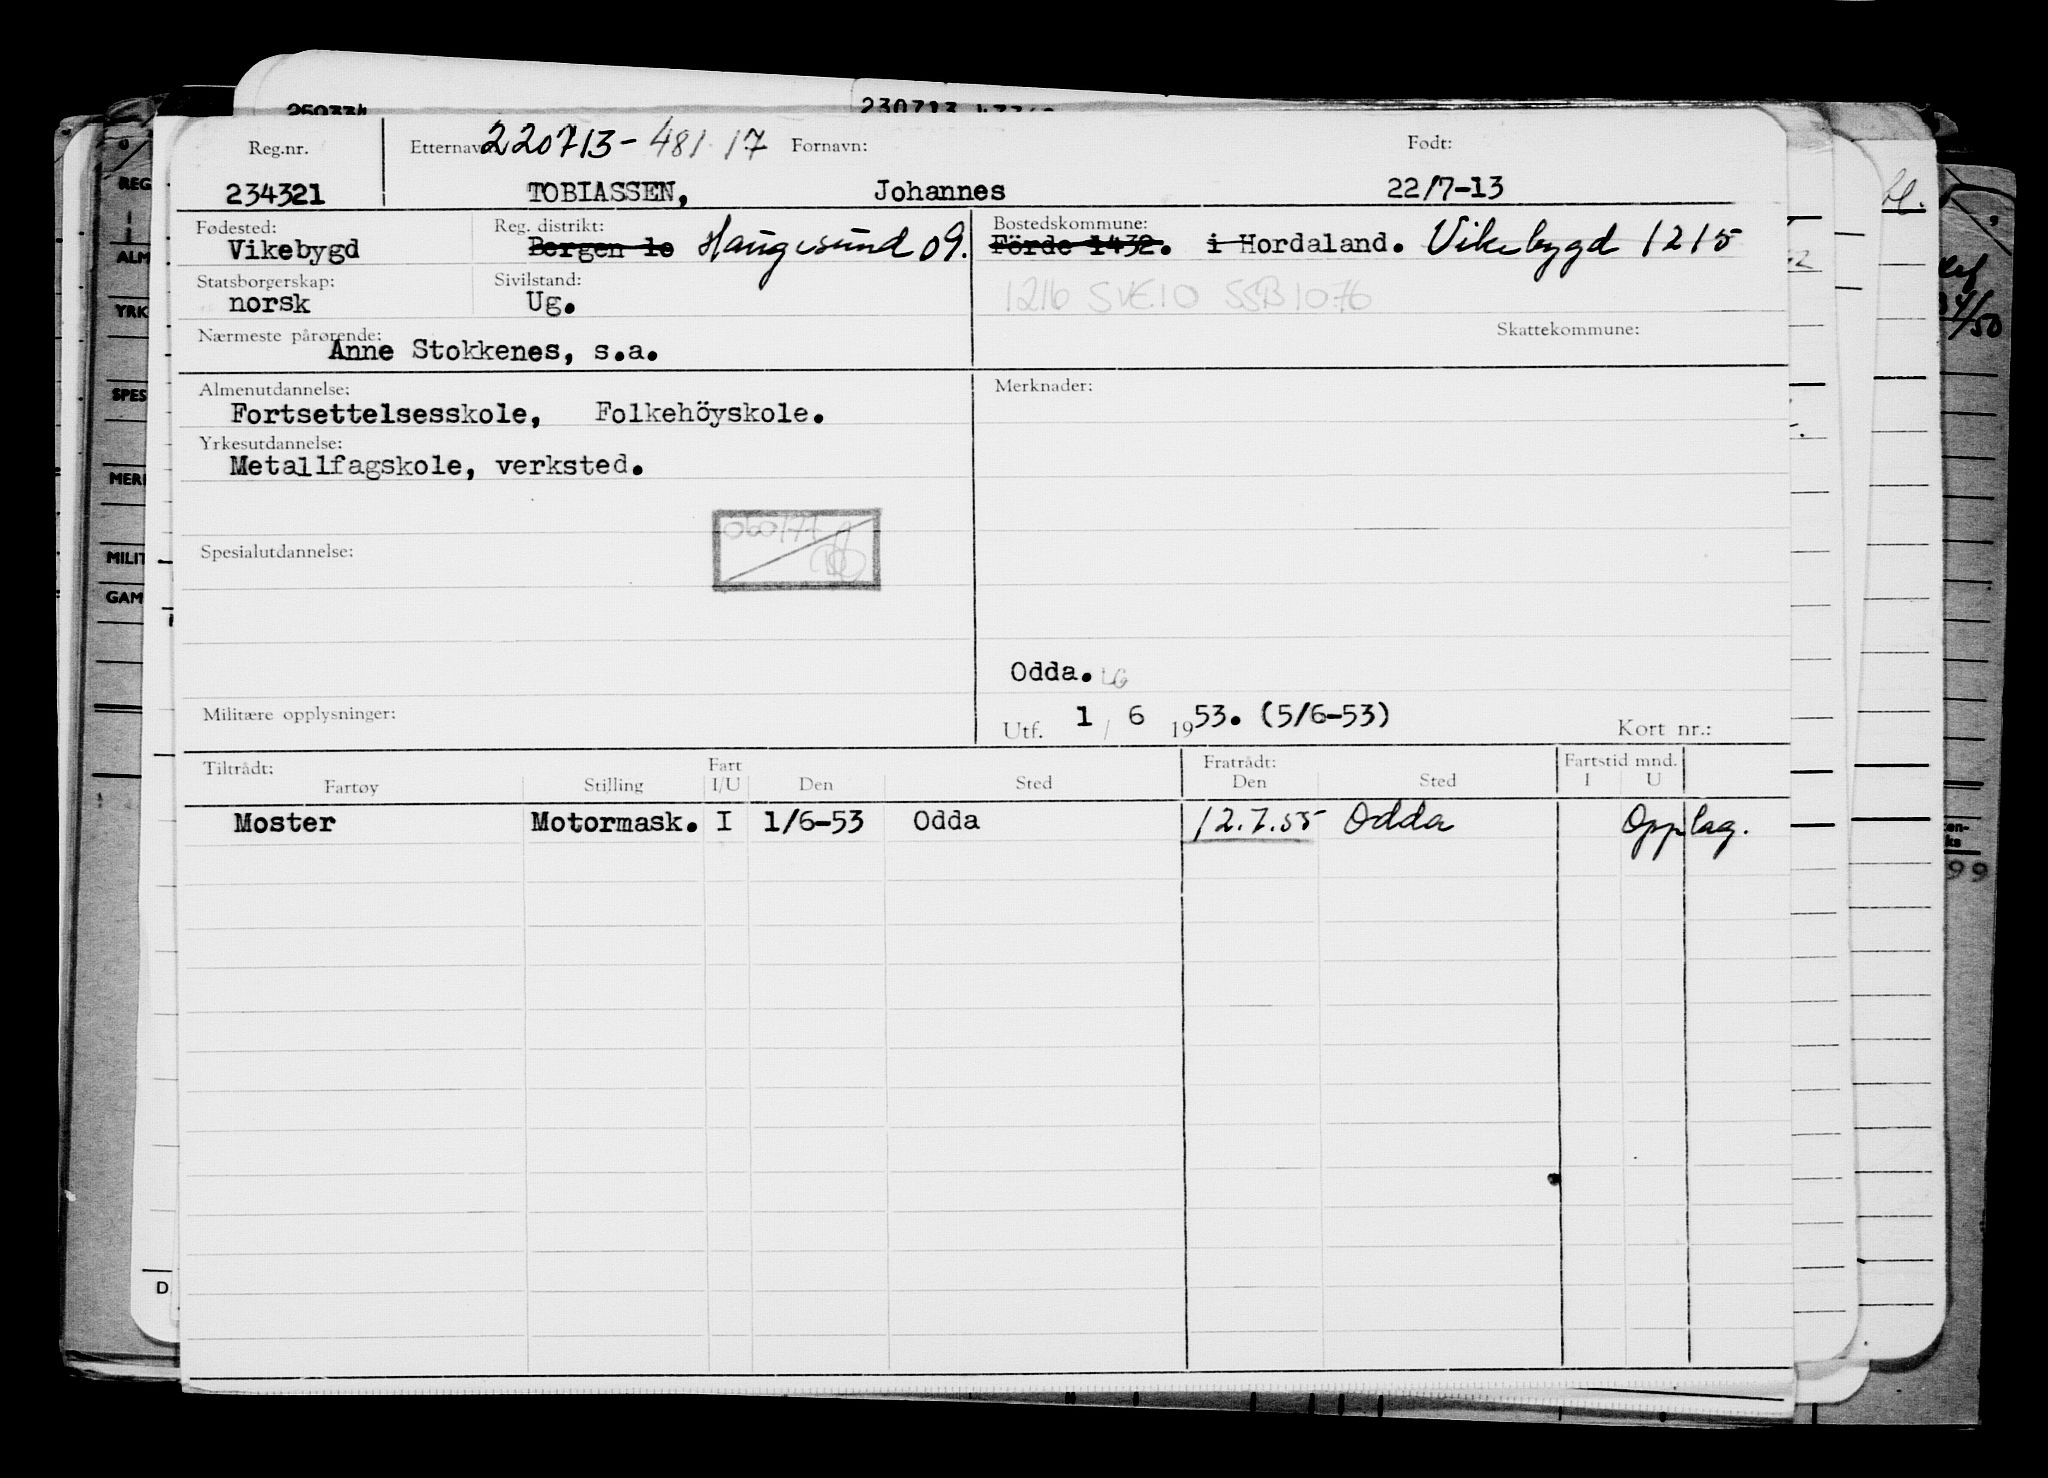 250334 230713
Reg.nr. Etternavn: 220713-481 17 Fornavn: Født:
234321 TOBIASSEN, Johannes 22/7-13
Fødested: Reg. distrikt: Bostedskommune:
Vikebygd Bergen 1o Haugesund 09. Förde 1432. i Hordaland. Vikebygd 1215
Statsborgerskap: Sivilstand:
norsk Ug. 1216 SVEIO SSB 1076
Nærmeste pårørende: Skattekommune:
Anne Stokkenes, s.a.
Almenutdannelse: Merknader:
Fortsettelsesskole, Folkehöyskole.
Yrkesutdannelse:
Metallfagskole, verksted.
Spesialutdannelse:
Odda. LG
Militære opplysninger:
Utf. 1 / 6 1953. (5/6-53) Kort nr.:
Tiltrådt: Fart Fratrådt: Fartstid mnd.
Fartøy Stilling I/U Den Sted Den Sted I U
Moster Motormask. I 1/6-53 Odda 12.7.55 Odda Opplag.
REG
ALM
YRK
SPES
MERI
MILIT
GAM
D
99